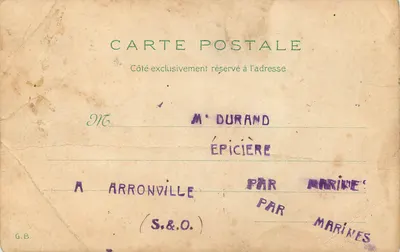 CARTE POSTALE
Côté exclusivement réservé à l'adresse.
M. Mᵉ DURAND
ÉPICIÈRE
A ARRONVILLE PAR MARINE
PAR MARINES
(S.&O.)
G.B.